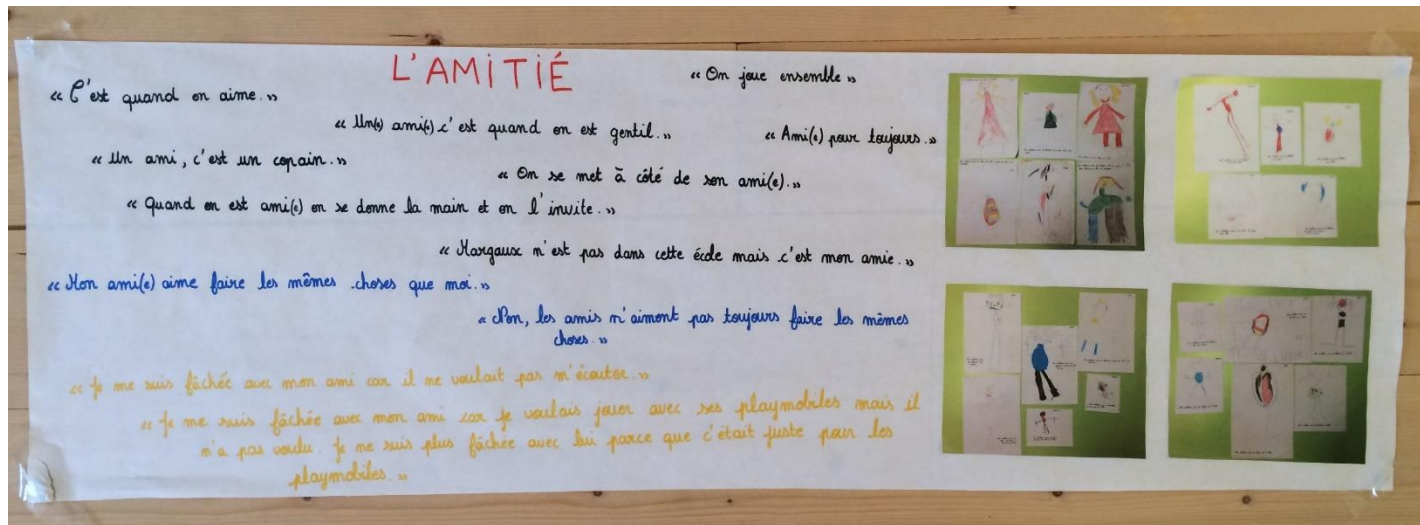 L'AMITIÉ
« On joue ensemble »
« C'est quand on aime. »
« Un(e) ami(e) c'est quand on est gentil. »
« Ami(e) pour toujours. »
« Un ami, c'est un copain. »
« On se met à côté de son ami(e). »
« Quand on est ami(e) on se donne la main et on l'invite. »
« Margaux n'est pas dans cette école mais c'est mon amie. »
« Mon ami(e) aime faire les mêmes choses que moi. »
« Non, les amis n'aiment pas toujours faire les mêmes
choses. »
« Je me suis fâchée avec mon ami car il ne voulait pas m'écouter. »
« Je me suis fâchée avec mon ami car je voulais jouer avec ses playmobiles mais il
n'a pas voulu. Je ne suis plus fâchée avec lui parce que c'était juste pour les
playmobiles. »